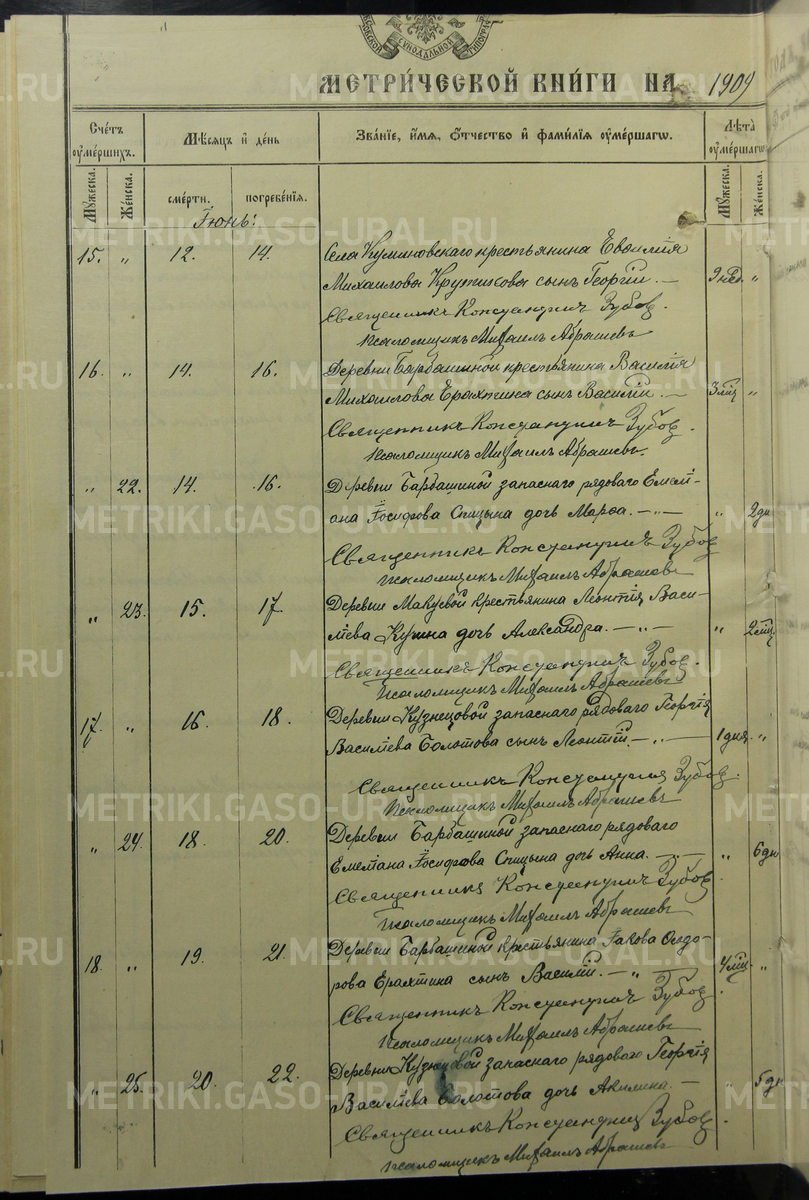 МЕТРИ́ЧЕСКОЙ КНИ́ГИ НА 1909
Сче́тъ оуме́ршихъ. Мѣ́сяцъ и҆ де́нь Зва́нїе, и҆́мя, ѻ҆́тчество и҆ фами́лїя оуме́ршагѡ. Лѣ́та оуме́ршагѡ
Му́жеска. Же́нска. сме́рти. погребе́нїя. Му́жеска. Же́нска.
Іюнь:
15. " 12. 14. Села крестьянина
Михаилова сынъ Георгій. — 9 нед. "
Священникъ Константинъ Зубов.
Псаломщикъ Михаилъ Абрашевъ
16. " 14. 16. Деревни Барбашиной крестьянина Василія
Михаилова Ерахтина сынъ Василій. — 3 мѣс. "
Священникъ Константинъ Зубов.
Псаломщикъ Михаилъ Абрашевъ.
" 22. 14. 16. Деревни Барбашиной запаснаго рядоваго Емелі-
ана Іосифова Спицына дочь Марѳа. — " — " 2 дн
Священникъ Константинъ Зубов
Псаломщикъ Михаилъ Абрашевъ
" 23. 15. 17. Деревни Макуевой крестьянина Леонтія Васи-
ліева дочь Александра. — " — " 2 мѣс.
Священникъ Константинъ Зубов.
Псаломщикъ Михаилъ Абрашевъ
17. " 16. 18. Деревни Кузнецовой запаснаго рядоваго Георгія
Василіева Болотова сынъ Леонтій. — " — 1 дня. "
Священникъ Константинъ Зубов.
Псаломщикъ Михаилъ Абрашевъ
" 24. 18. 20. Деревни Барбашиной запаснаго рядоваго
Емеліана Іосифова Спицына дочь Анна. — " — " 6 дн
Священникъ Константинъ Зубов
Псаломщикъ Михаилъ Абрашевъ
18. " 19. 21. Деревни Барбашиной крестьянина Іакова Сидо-
рова Ерахтина сынъ Василій. — " — 4 мѣс. "
Священникъ Константинъ Зубов.
Псаломщикъ Михаилъ Абрашевъ
" 25. 20. 22. Деревни Кузнецовой запаснаго рядоваго Георгія
Василіева Болотова дочь Акилина. — " 5 дн
Священникъ Константинъ Зубов.
Псаломщикъ Михаилъ Абрашевъ
METRIKI.GASO-URAL.RU